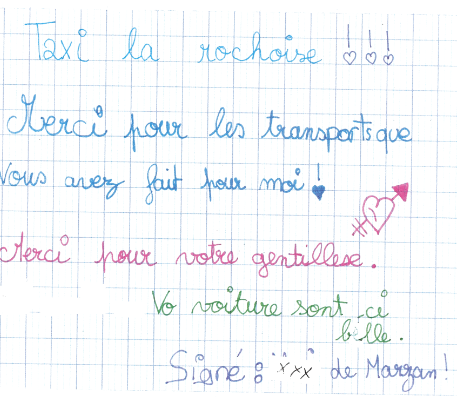 Taxi la rochoise !!!
Merci pour les transports que
vous avez fait pour moi !
Merci pour votre gentillese.
Vo voiture sont ci
bille.
Signé : "xxx" de Marzan !